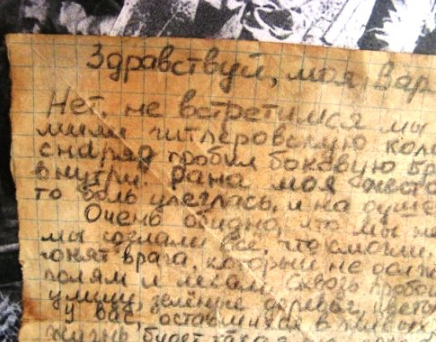 Здравствуй, моя Вар
Нет, не встретимся мы
мили гитлеровскую кол
снаряд пробил боковую бр
внутри. Рана моя жесто
то боль улеглась, и на душе
Очень обидно, что мы не
мы сделали все, что смогли.
гонят врага, который не долж
полям и лесам. Сквозь пробои
улицу, зелёные деревья, цветы
у вас, оставшихся в живых,
жизнь будет такая